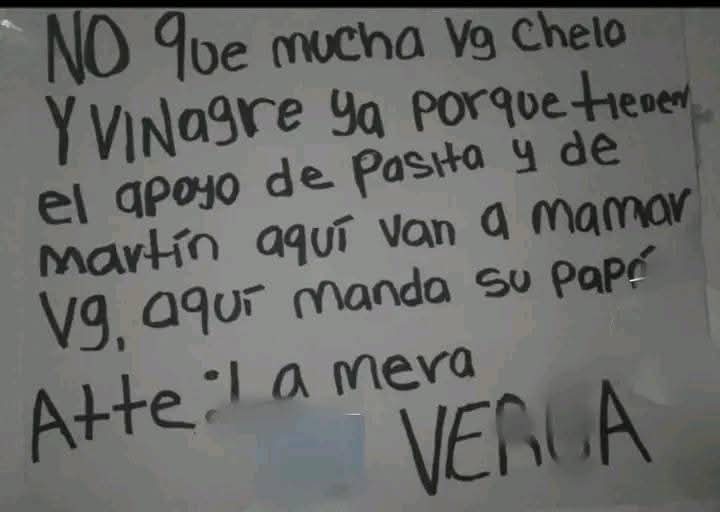 NO que mucha Vg Chelo
Y VINagre ya porque tienen
el apoyo de Pasita y de
martín aquí van a mamar
Vg, aquí manda su papá
Atte: La mera
VERGA